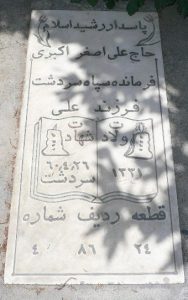 پاسدار رشید اسلام
حاج علی اصغر اکبری
فرمانده سپاه سردشت
فرزند علی
ت ت
ولاد شهاد
۱۳۳۱ ۶۰,۴,۲۶
سردشت
قطعه ردیف شماره
۲۴ ۸۶ ۴